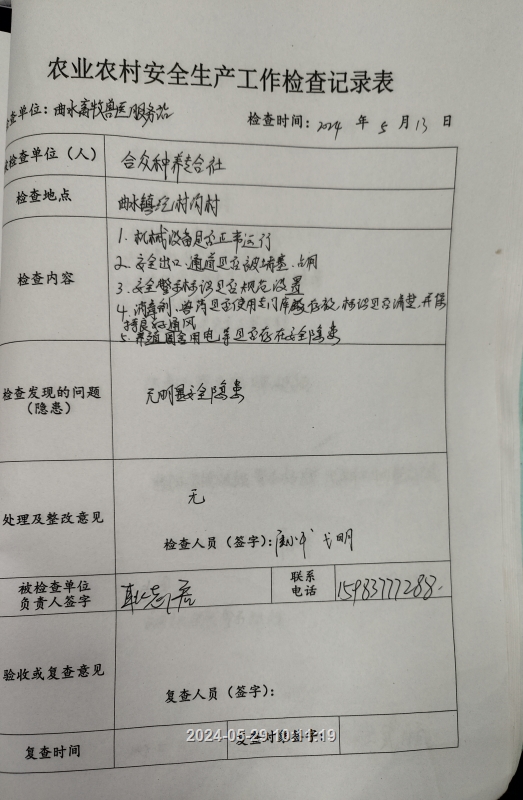 农业农村安全生产工作检查记录表
检查单位：曲水畜牧兽医服务站 检查时间：2024 年 5 月 13 日
被检查单位（人） 合众种养专合社
检查地点 曲水镇 村 村
检查内容 1. 机械设备是否正常运行
2. 安全出口、通道是否被堵塞、占用
3. 安全警示标识是否规范设置
4. 消毒剂、兽药是否使用专门库 存放，标识是否清楚，并保
持良好通风
5. 养殖圈舍用电等是否存在安全隐患
检查发现的问题
（隐患） 无明显安全隐患
处理及整改意见 无
检查人员（签字）：
被检查单位
负责人签字 联系
电话 15983777288
验收或复查意见
复查人员（签字）：
复查时间 复查对象签字：